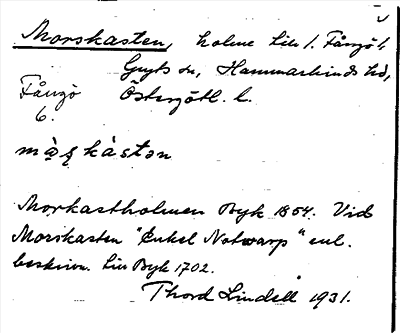 Morskasten, holme till 1. Fångö,
Gryts sn, Hammarkinds hd,
Fångö Östergötl. l.
6.
kàstən
Morkastholmen Byk 1854. Vid
Morskasten "Enkel Notwarp" enl.
beskrivn. till Byk 1702.
Thord Lindell 1931.